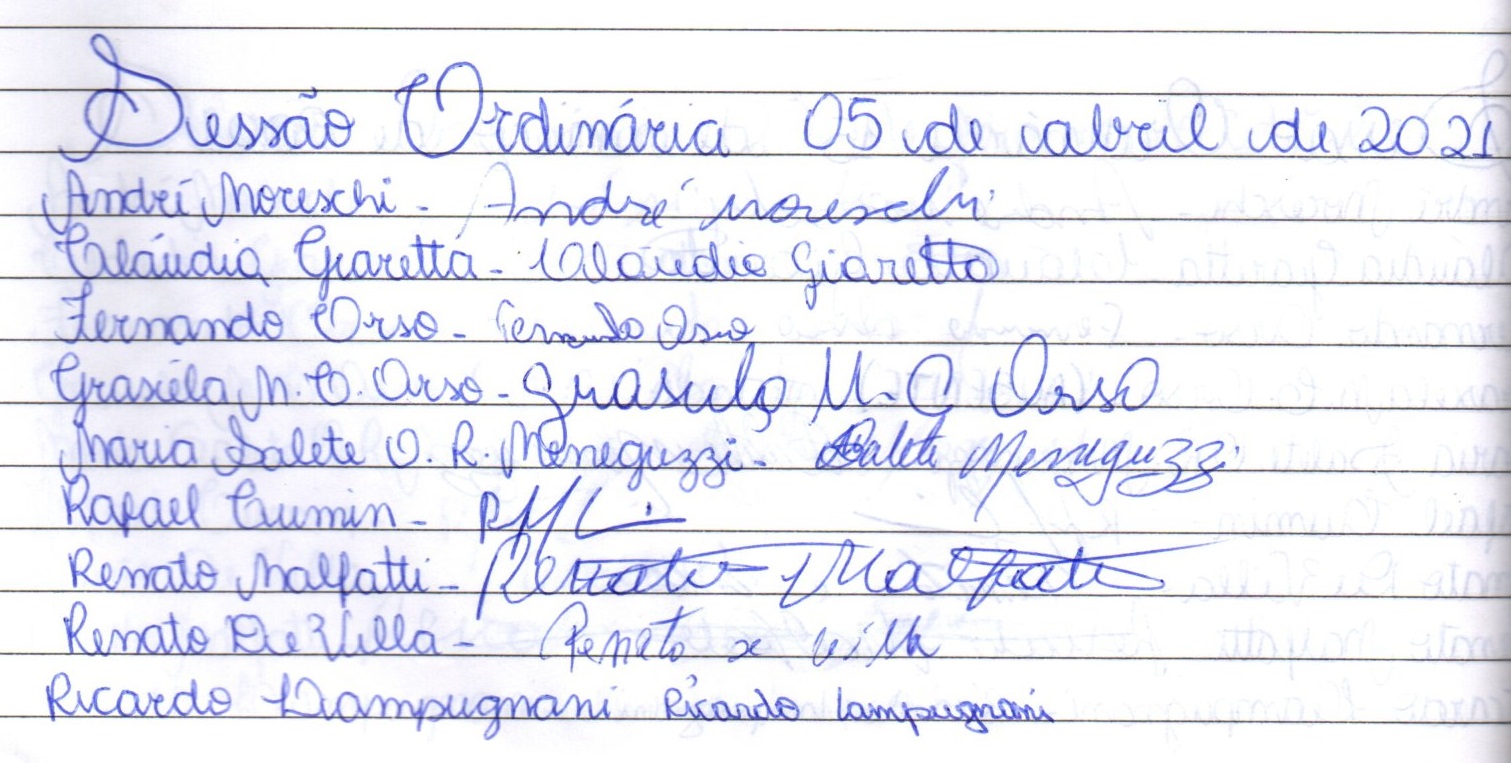 Sessão Ordinária 05 de abril de 2021
André Moreschi - André Moreschi
Cláudia Giaretta - Claudia Giaretta
Fernando Orso - Fernando Orso
Grasiéla M. C. Orso - Grasiela M. C Orso
Maria Salete O. R. Meneguzzi - Salete Meneguzzi
Rafael Cumin -
Renato Malfatti - Renato Malfatti
Renato De Villa - Renato De Villa
Ricardo Lampugnani Ricardo Lampugnani